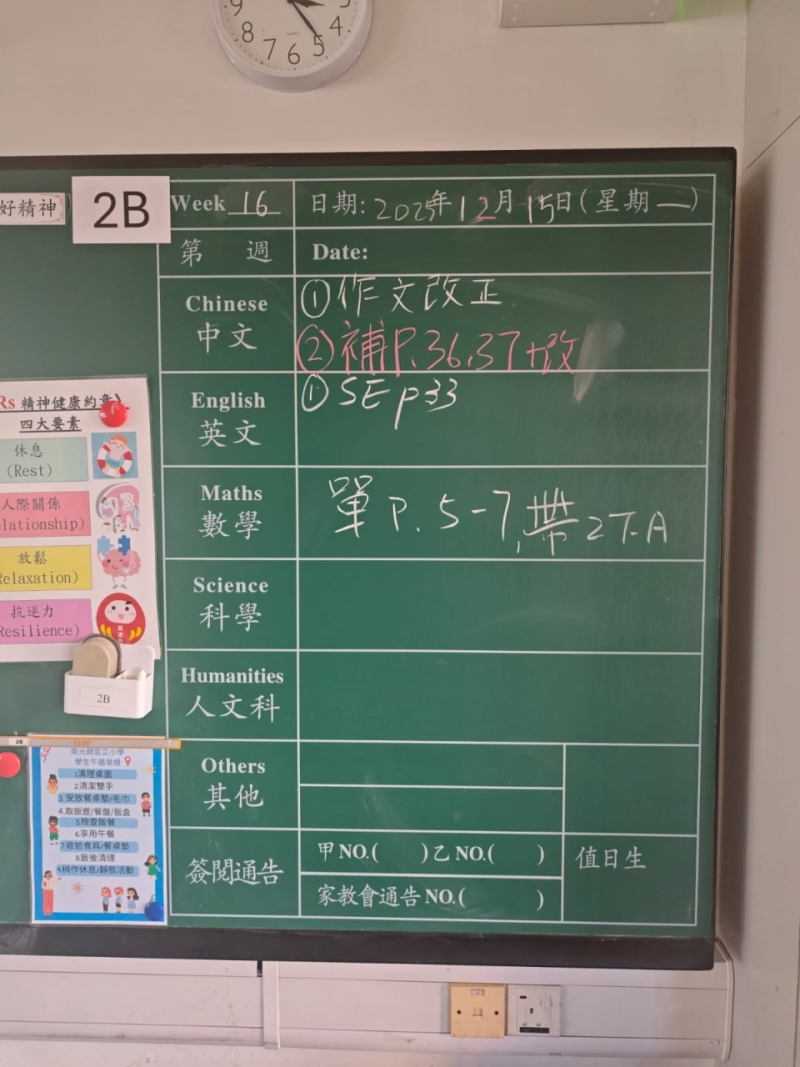 9 8 7 6 5 4 3
好精神
2B
Week 16
日期: 2025年12月15日(星期一)
第 週
Date:
Chinese
中文
①作文改正
②補P.36,37+改
English
英文
①SE p33
Maths
數學
單P.5-7,帶2T-A
Science
科學
Humanities
人文科
Others
其他
簽閱通告
甲NO.( )乙NO.( )
家教會通告NO.( )
值日生
Rs 精神健康約章》
四大要素
休息
(Rest)
人際關係
elationship)
放鬆
Relaxation)
抗逆力
Resilience)
2B
2B
學生午膳常規
1清理桌面
2清潔雙手
3.安放餐桌墊/毛巾
4.取飯壺/餐盤/飯盒
5檢查飯餐
6.享用午餐
7收拾食具/餐桌墊
8飯後清理
9稍作休息/靜態活動